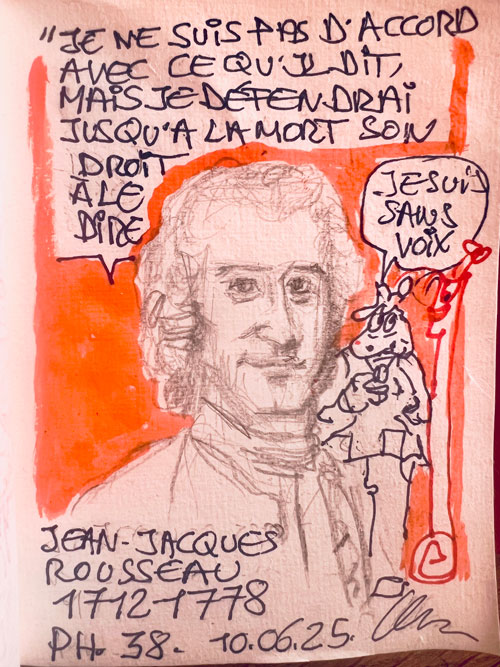 "JE NE SUIS PAS D'ACCORD
AVEC CE QU'IL DIT,
MAIS JE DÉFENDRAI
JUSQU'A LA MORT SON
DROIT
A LE
DIRE
JE SUIS
SANS
VOIX
JEAN-JACQUES
ROUSSEAU
1712-1778
PH. 38. 10.06.25.